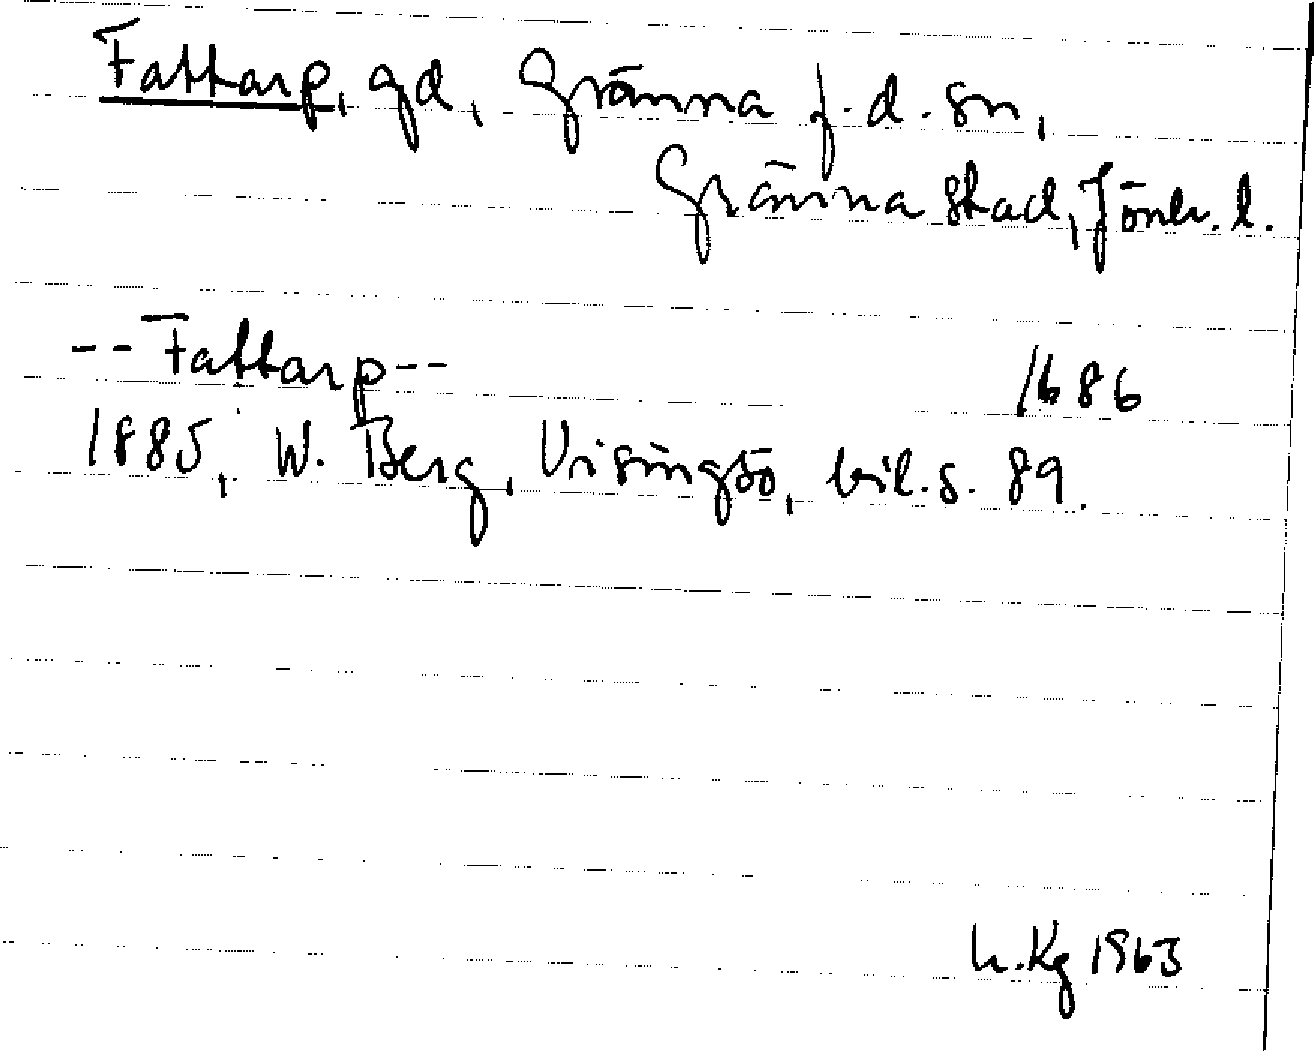 Fattarp, gd, Gränna f.d. sn,
Gränna stad, Jönk. l.
-- Fattarp -- 1686
1885, W. Berg, Visingsö, bil. s. 89.
h.Kg 1963